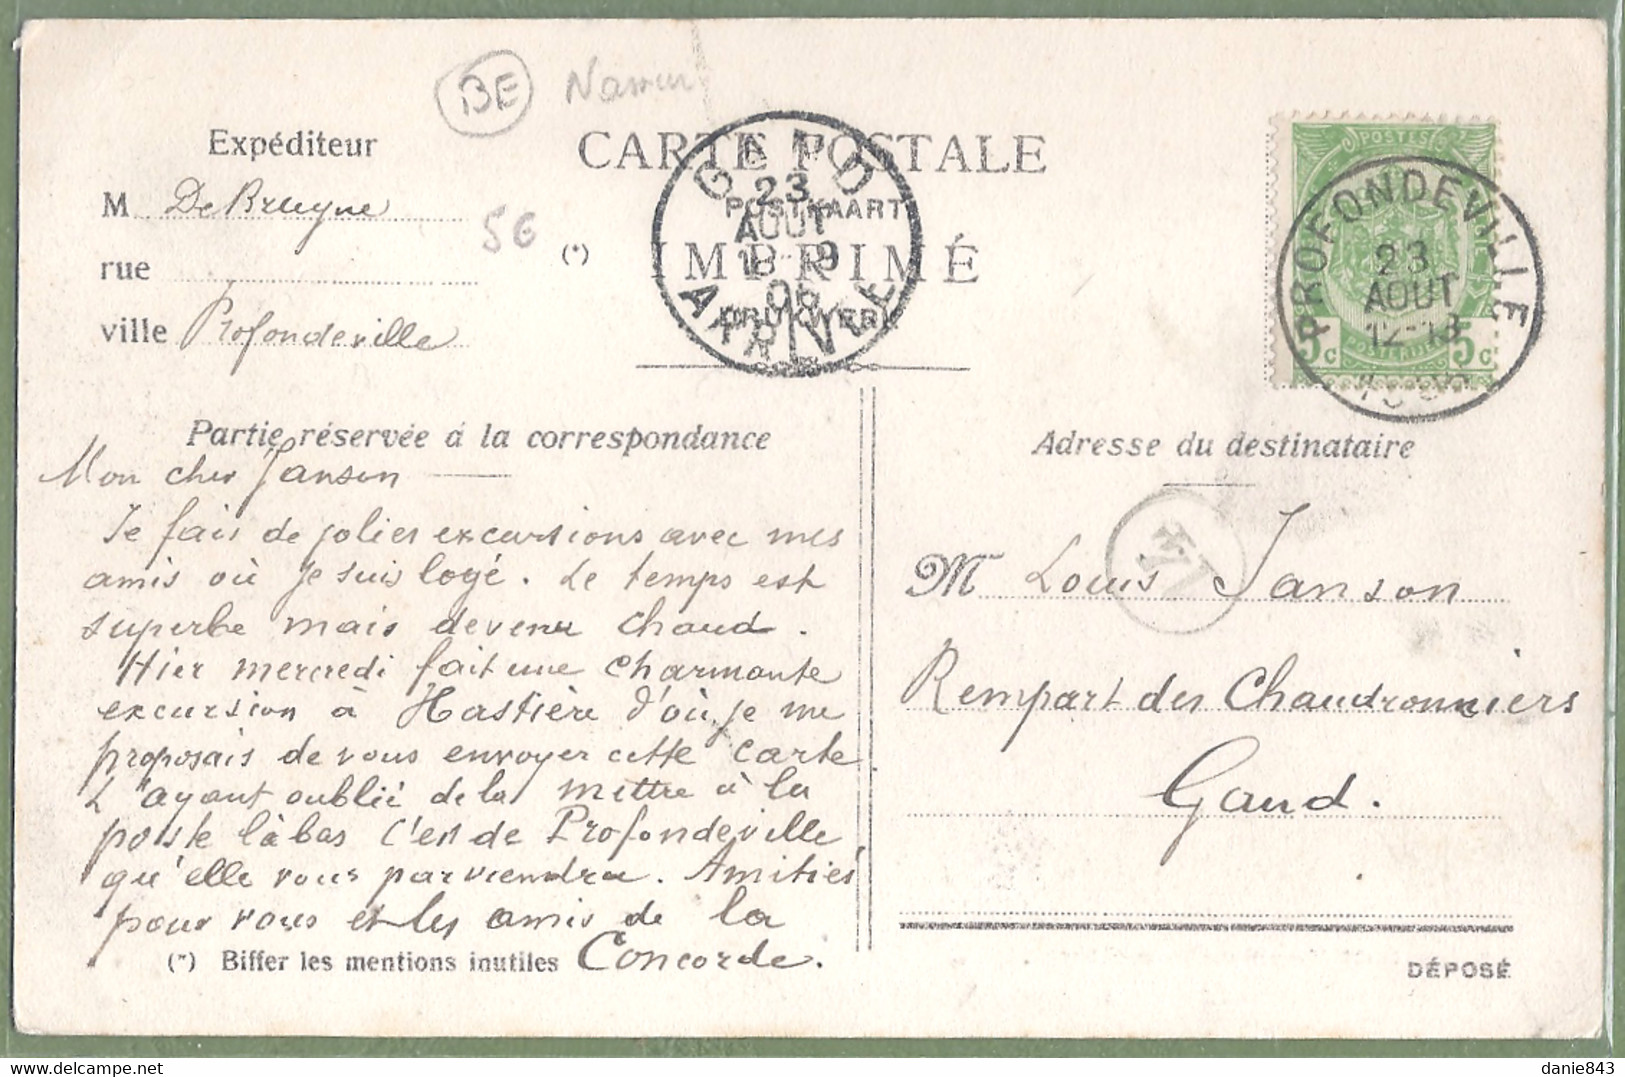 BE Namur
CARTE POSTALE
Expéditeur
M De Bruyne
56
POSTKAART
rue
(*)
IMPRIMÉ
ville Profondeville
DRUKWERK
GAND
23
AOUT
18-19
06
ARRIVEE
POSTES
5c
POSTERIJEN
5c
PROFONDEVILLE
23
AOUT
12-13
Partie réservée á la correspondance
Mon cher Janson
Je fais de jolies excursions avec mes
amis où je suis logé. Le temps est
superbe mais devenu chaud.
Hier mercredi fait une charmante
excursion à Hastière d'où je me
proposais de vous envoyer cette carte.
L'ayant oublié de la mettre à la
poste là bas c'est de Profondeville
qu'elle vous parviendra. Amitiés
pour vous et les amis de la
Concorde.
(*) Biffer les mentions inutiles
Adresse du destinataire
M Louis Janson
Rempart des Chaudronniers
Gand.
DÉPOSÉ
danie843